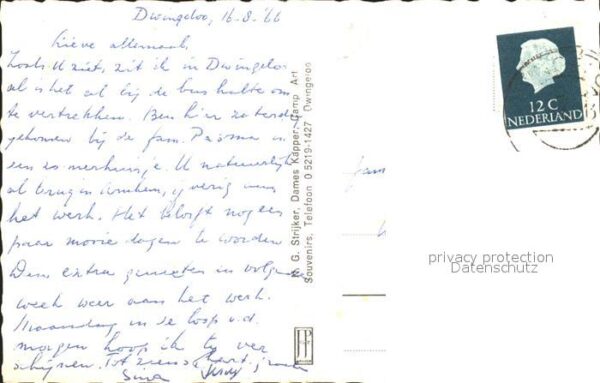 Dwingeloo, 16-8-'66
Lieve allemaal,
Zoals U ziet, zit ik in Dwingeloo
al is het al bij de bushalte om
te vertrekken. Ben hier zaterdag
gekomen bij de fam. Prisma in
een zomerhuisje. U natuurlijk
al terug in Arnhem, ijverig aan
het werk. Het belooft nog een
paar mooie dagen te worden
Dus extra genieten en volgende
week weer aan het werk.
Maandag in de loop v.d.
morgen hoop ik te ver-
schijnen. Tot ziens, hart. groeten
W. G. Strijker, Dames Kapper, Camp Art
Souvenirs, Telefoon 0 5219-1427 Dwingeloo
12 C
NEDERLAND
fam
privacy protection
Datenschutz
JP